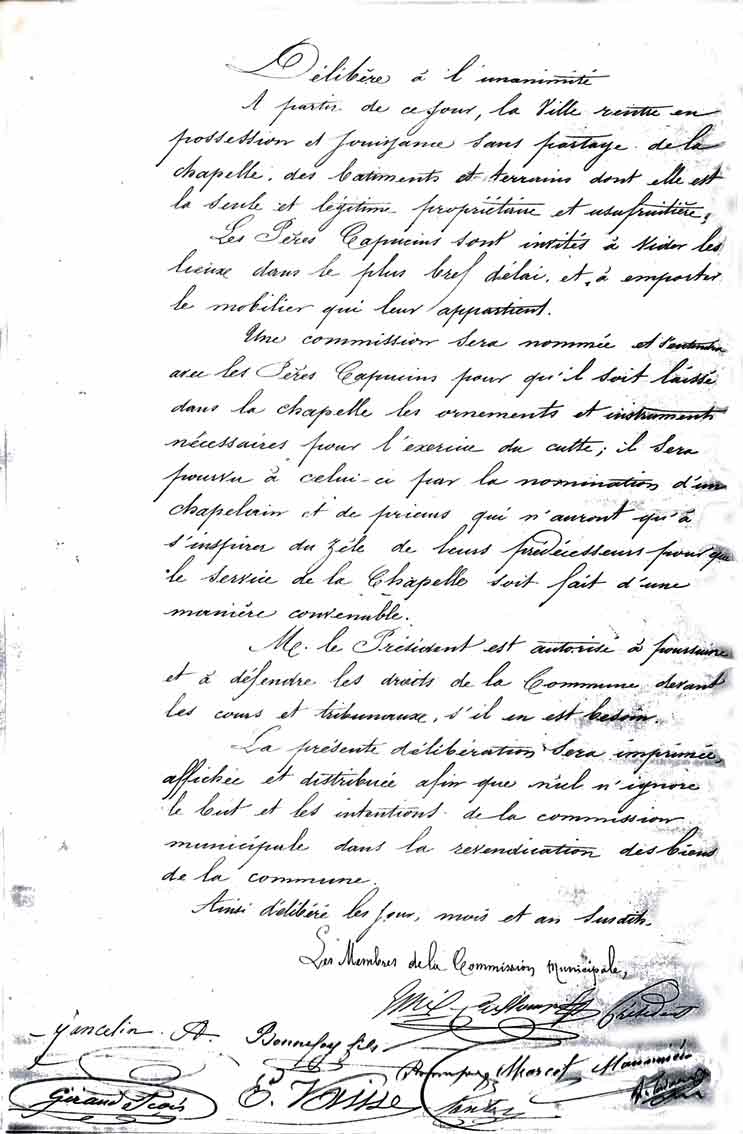 Délibère à l'unanimité
A partir de ce jour, la Ville rentre en
possession et jouissance sans partage de la
chapelle, des batiments et terrains dont elle est
la seule et légitime propriétaire et usufruitière.
Les Pères Capucins sont invités à vider les
lieux dans le plus bref délai, et à emporter
le mobilier qui leur appartient.
Une commission sera nommée et s'entendra
avec les Pères Capucins pour qu'il soit laissé
dans la chapelle les ornements et instruments
nécessaires pour l'exercice du culte; il sera
pourvu à celui-ci par la nomination d'un
chapelain et de prieurs qui n'auront qu'à
s'inspirer du zèle de leurs prédécesseurs pour que
le service de la Chapelle soit fait d'une
manière convenable.
M. le Président est autorisé à poursuivre
et à défendre les droits de la Commune devant
les cours et tribunaux, s'il en est besoin.
La présente délibération sera imprimée,
affichée et distribuée afin que nul n'ignore
le but et les intentions de la commission
municipale dans la revendication des biens
de la commune.
Ainsi délibéré les jour, mois et an susdits.
Les Membres de la Commission Municipale,
Président
A. Bonnefoy fils
Marcot
Giraud François
E. Vaisse